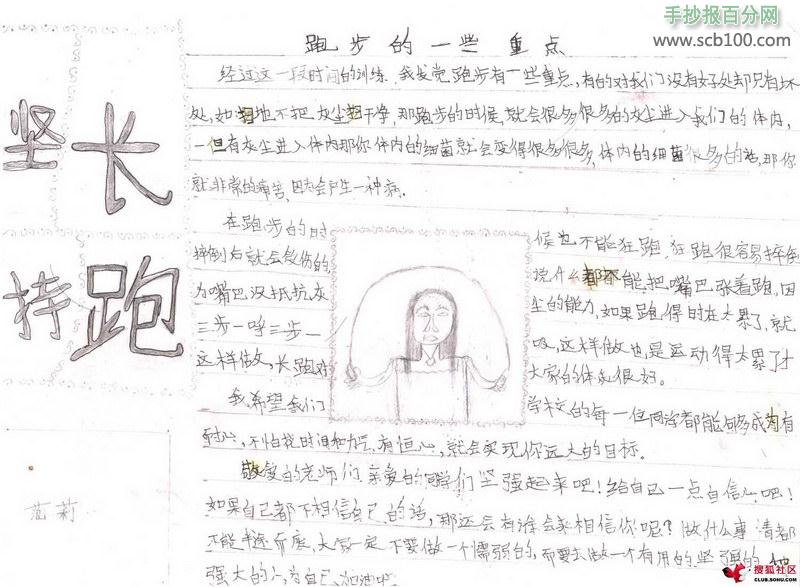 手抄报百分网
www.scb100.com
跑步的一些重点
坚长
持跑
范莉
经过这一段时间的训练,我发觉跑步有一些重点,有的对我们没有好处却只有坏
处,如扫地不把灰尘扫干净,那跑步的时候,就会很多很多的灰尘进入我们的体内,
一但有灰尘进入体内那你体内的细菌就会变得很多很多,体内的细菌很多的话,那你
就非常的痛苦,因为会产生一种病。
在跑步的时候也不能狂跑,狂跑很容易摔倒
摔倒后就会很伤的,说什么都不能把嘴巴张着跑,因
为嘴巴没抵抗灰尘的能力,如果跑得时在太累了,就
三步一呼三步一吸,这样做也是运动得太累了才
这样做,长跑对大家的体会很好。
我希望我们学校的每一位同学都能够成为有
耐心,不怕花时间和力气,有恒心,就会实现你远大的目标。
敬爱的老师们,亲爱的同学们坚强起来吧!给自己一点自信心吧!
如果自己都不相信自己的话,那还会有谁会来相信你呢?做什么事请都
不能半途而废,大家一定不要做一个懦弱的,而要去做一个有用的坚强的
强大的人,为自己加油吧
搜狐社区
CLUB.SOHU.COM